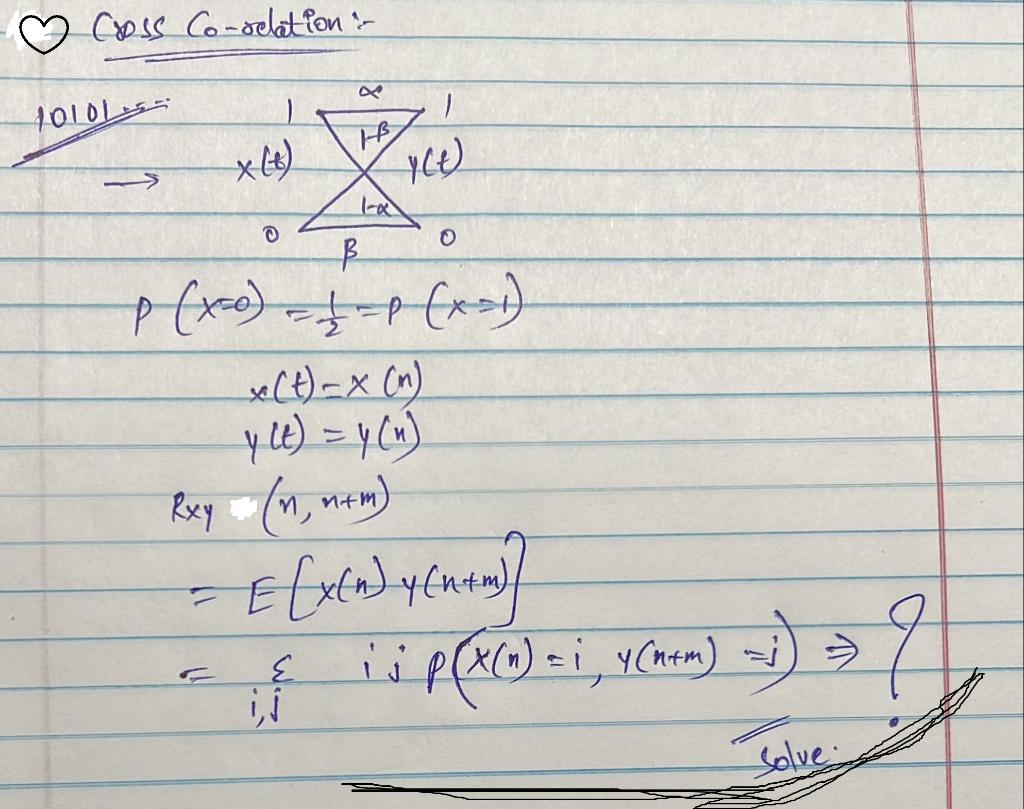 Cross Co-relation :-
10101 ----
α
1 1
1-β
x(t) y(t)
→
1-α
0 0
β
P (x=0) = 1/2 = P (x=1)
x(t) = x (n)
y(t) = y(n)
Rxy (n, n+m)
= E [x(n) y(n+m)]
= Σ i j P(x(n) = i, y(n+m) = j) ⇒ ?
i,j
Solve.